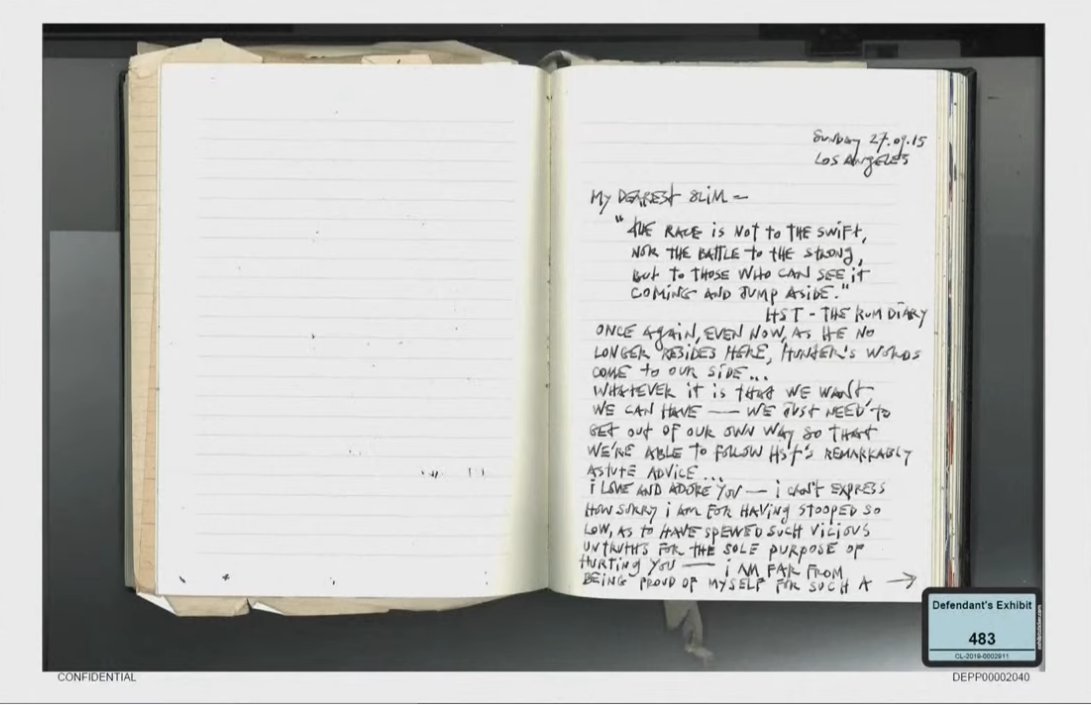 Sunday 27.09.15
LOS ANgELES
My DEAREST SLiM —
"THE RACE iS NOT TO THE SWiFT,
NOR THE BATTLE TO THE STRONG,
BUT TO THOSE WHO CAN SEE iT
COMiNG AND JUMP ASiDE."
HST - THE RUM DiARY
ONCE AGAiN, EVEN NOW, AS HE NO
LONGER RESiDES HERE, HUNTER'S WORDS
COME TO OUR SiDE...
WHATEVER iT iS THAT WE WANT,
WE CAN HAVE — WE JUST NEED TO
GET OUT OF OUR OWN WAY SO THAT
WE'RE ABLE TO FOLLOW HST'S REMARKABLY
ASTUTE ADViCE...
i LOVE AND ADORE YOU — i CAN'T EXPRESS
HOW SORRY i AM FOR HAViNG STOOPED SO
LOW, AS TO HAVE SPEWED SUCH ViCiOUS
UNTRUTHS FOR THE SOLE PURPOSE OF
HURTiNG YOU — i AM FAR FROM
BEiNG PROUD OF MYSELF FOR SUCH A →
Defendant's Exhibit
483
CL-2019-0002911
CONFIDENTIAL
DEPP00002040